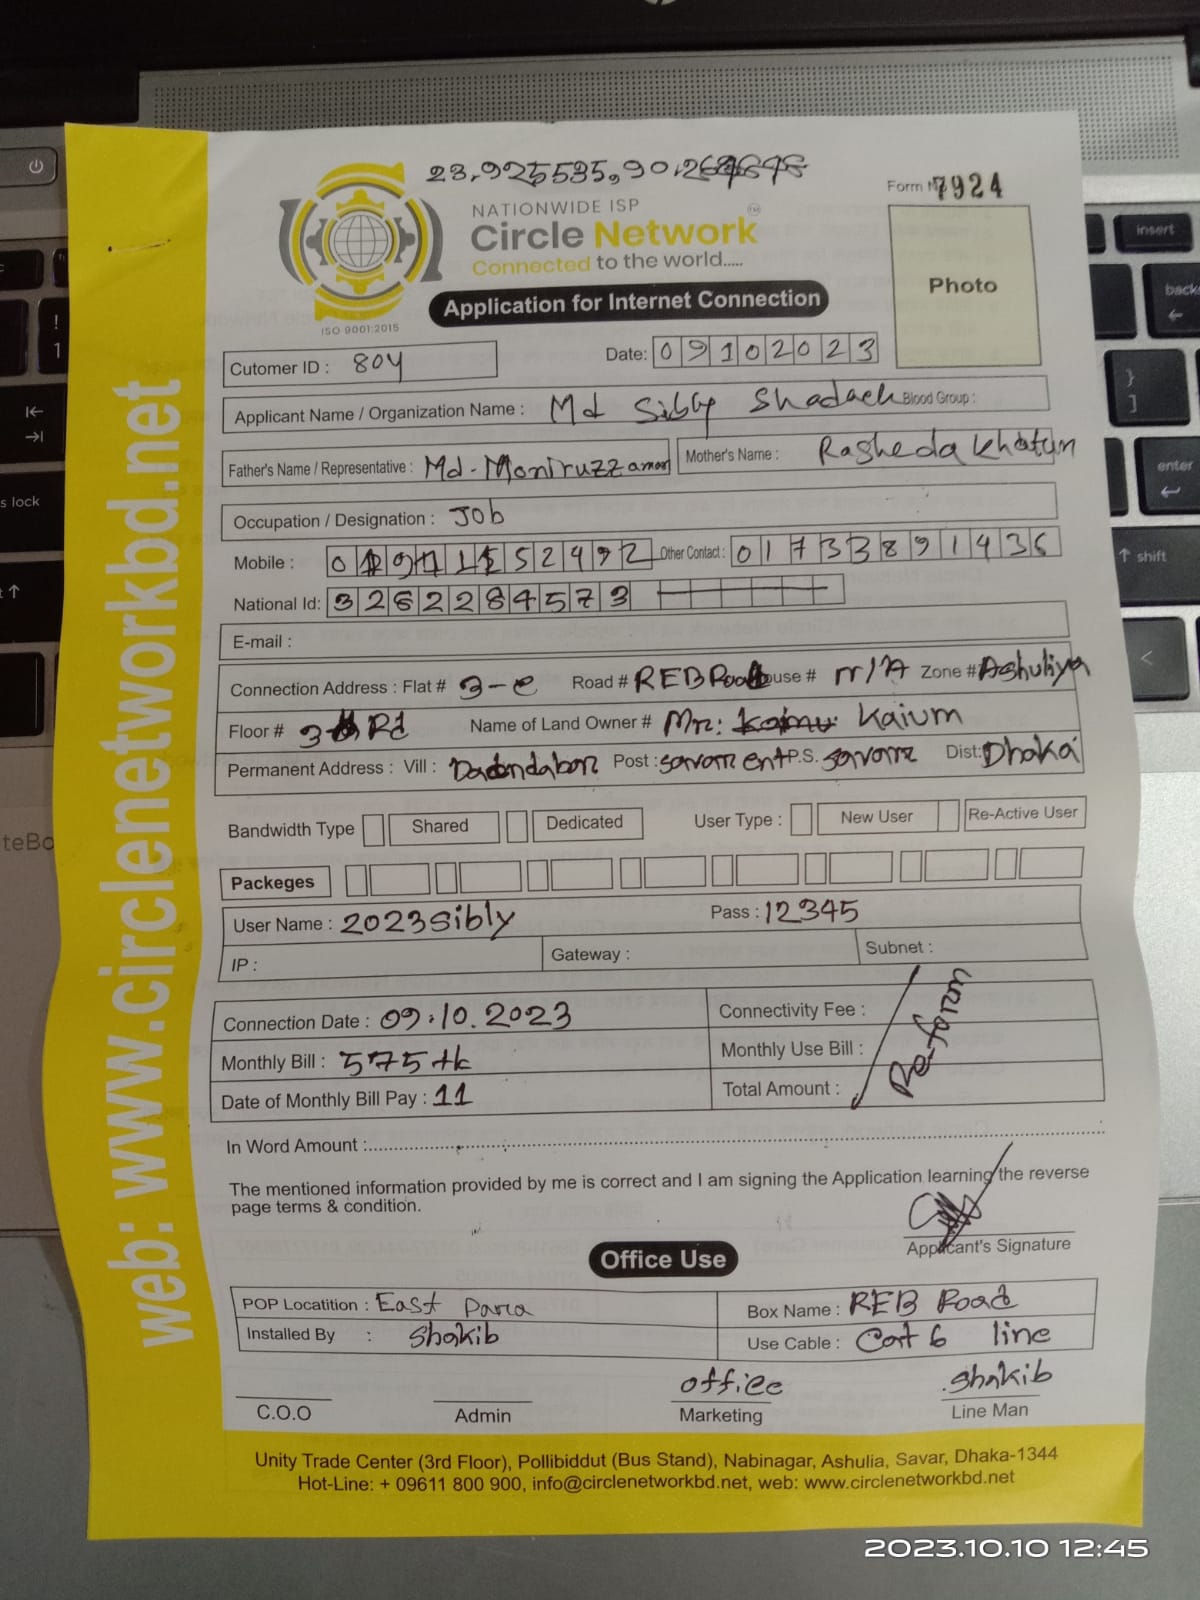 23.925535,90.
NATIONWIDE ISP
Circle Network
TM
Connected to the world.....
ISO 9001:2015
Form No 7924
Photo
Application for Internet Connection
Cutomer ID : 804
Date: 09102023
Applicant Name / Organization Name : Md Sibly Shadaek Blood Group :
Father's Name / Representative : Md. Moniruzzaman Mother's Name : Rasheda Khatun
Occupation / Designation : Job
Mobile : Other Contact : 01733891436
National Id: 3262284573
E-mail :
Connection Address : Flat # 3-e Road # REB Road House # N/A Zone # Ashuliya
Floor # 3 Rd Name of Land Owner # Mr: Kaium
Permanent Address : Vill : Post : savar ent P.S. Dist: Dhaka
Bandwidth Type Shared Dedicated User Type : New User Re-Active User
Packeges
User Name : 2023sibly Pass : 12345
IP : Gateway : Subnet :
Connection Date : 09.10.2023 Connectivity Fee :
Monthly Bill : 575 tk Monthly Use Bill :
Date of Monthly Bill Pay : 11 Total Amount :
In Word Amount :
The mentioned information provided by me is correct and I am signing the Application learning the reverse
page terms & condition.
Applicant's Signature
Office Use
POP Locatition : East Para Box Name : REB Road
Installed By : Shakib Use Cable : Cat 6 line
office Shakib
C.O.O Admin Marketing Line Man
Unity Trade Center (3rd Floor), Pollibiddut (Bus Stand), Nabinagar, Ashulia, Savar, Dhaka-1344
Hot-Line: + 09611 800 900, info@circlenetworkbd.net, web: www.circlenetworkbd.net
web: www.circlenetworkbd.net
2023.10.10 12:45
insert
enter
shift
s lock